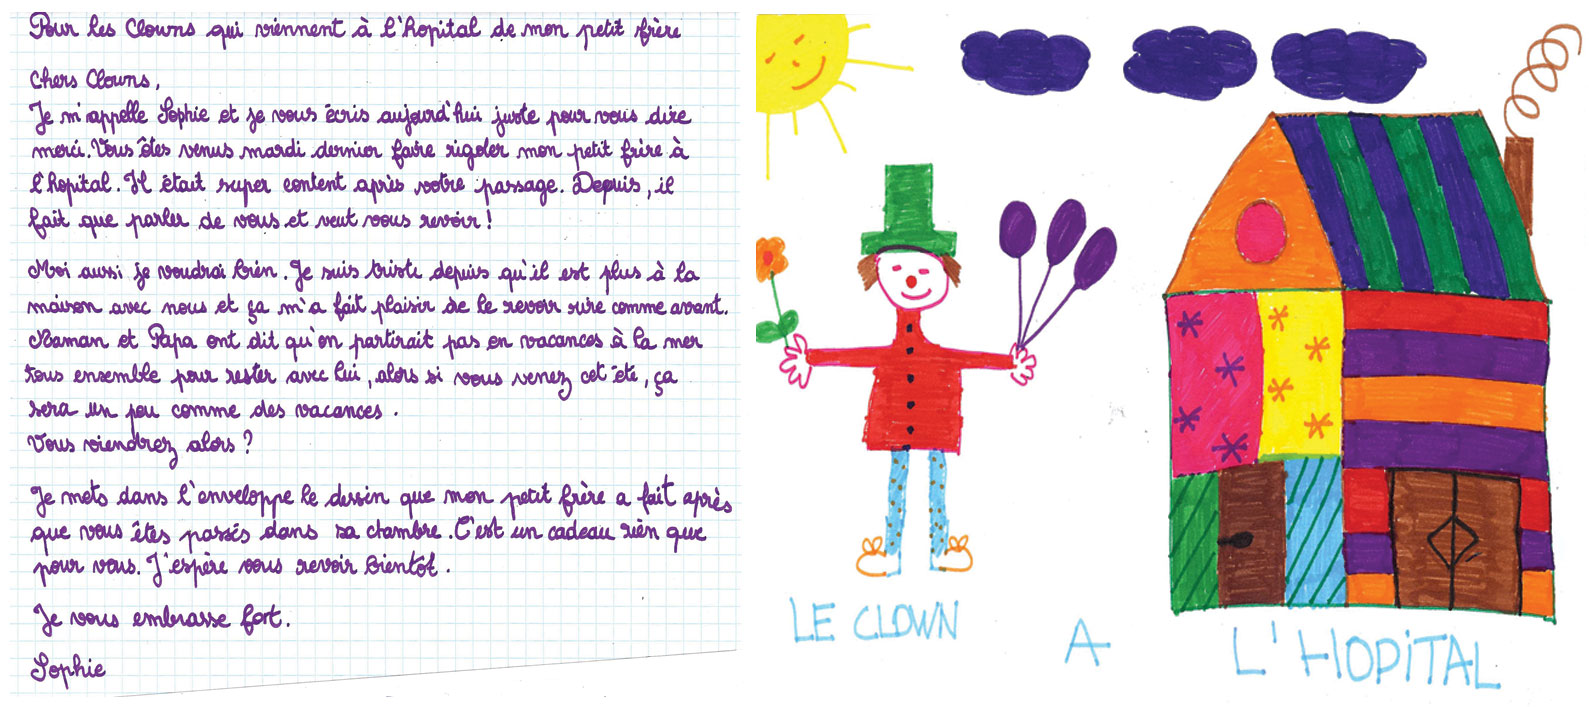 Pour les Clowns qui viennent à l'hopital de mon petit frère
Chers Clowns,
Je m'appelle Sophie et je vous écris aujourd'hui juste pour vous dire
merci. Vous êtes venus mardi dernier faire rigoler mon petit frère à
l'hopital. Il était super content après votre passage. Depuis, il
fait que parler de vous et veut vous revoir !
Moi aussi je voudrai bien. Je suis triste depuis qu'il est plus à la
maison avec nous et ça m'a fait plaisir de le revoir rire comme avant.
Maman et Papa ont dit qu'on partirait pas en vacances à la mer
tous ensemble pour rester avec lui, alors si vous venez cet été, ça
sera un peu comme des vacances.
Vous viendrez alors ?
Je mets dans l'enveloppe le dessin que mon petit frère a fait après
que vous êtes passés dans sa chambre. C'est un cadeau rien que
pour vous. J'espère vous revoir bientôt.
Je vous embrasse fort.
Sophie
LE CLOWN A L'HOPITAL